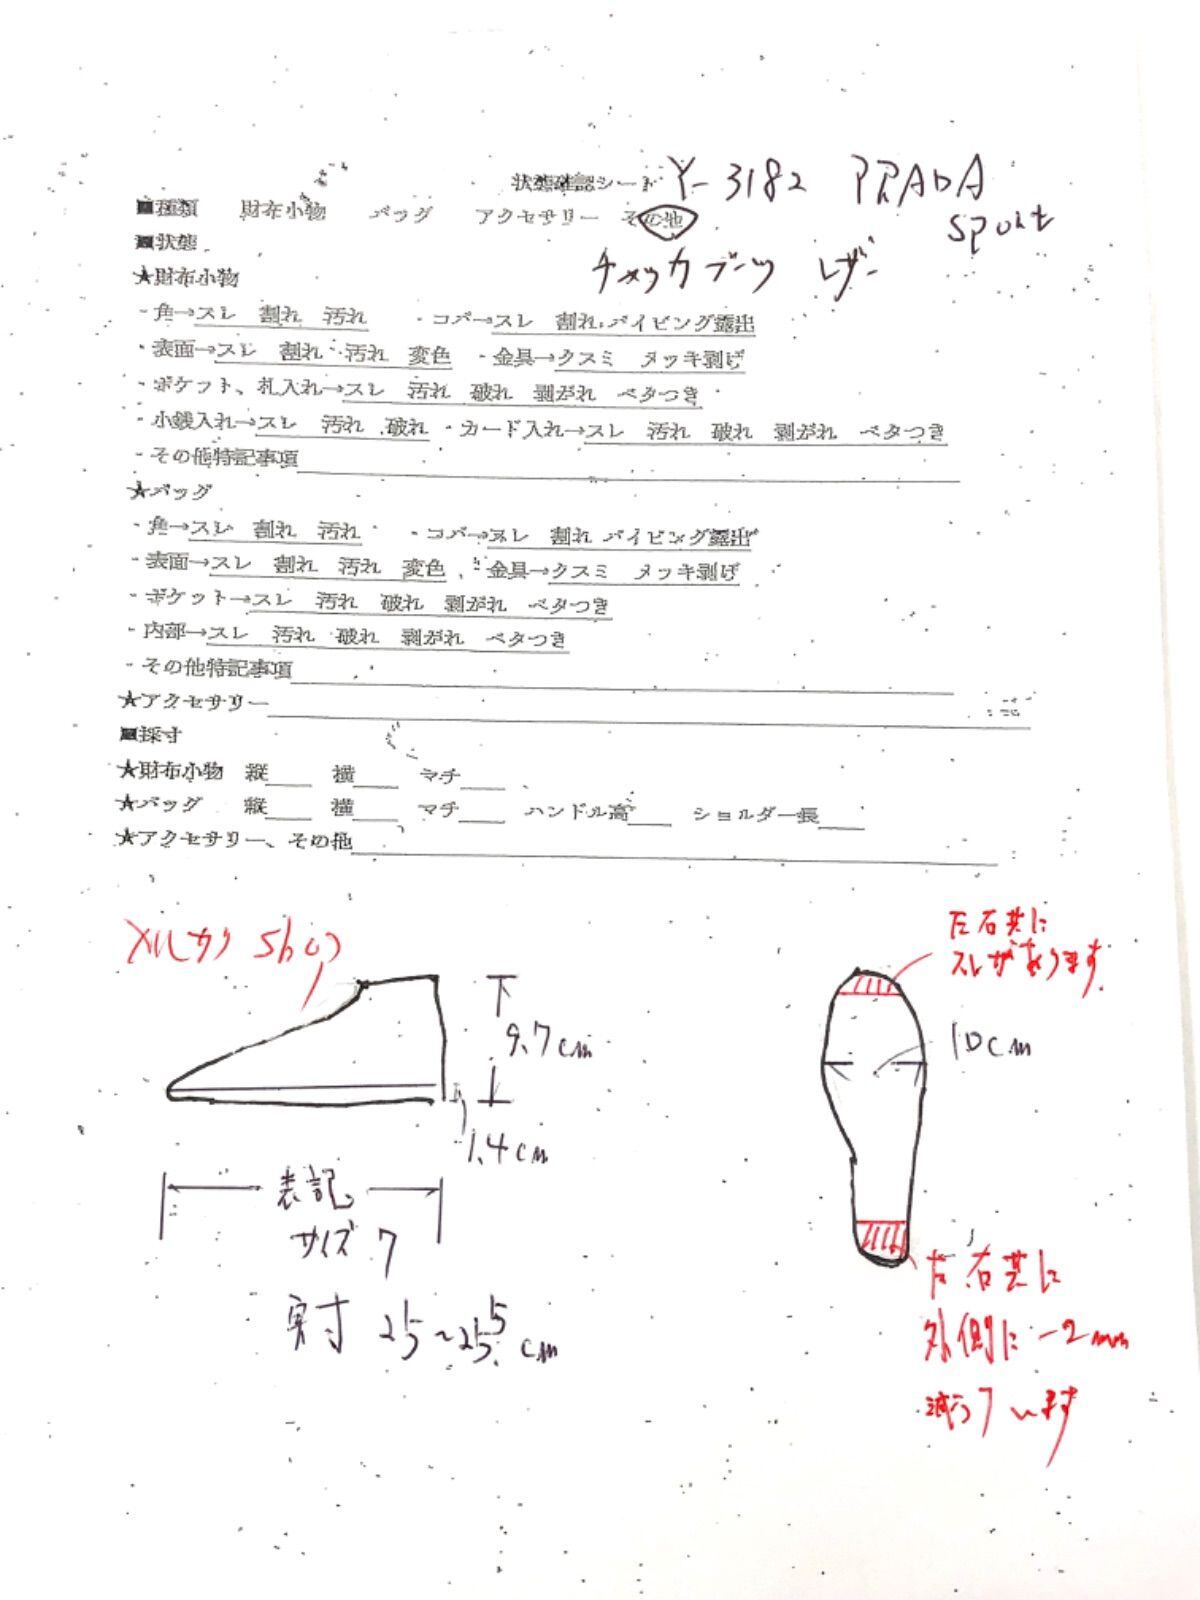 状態確認シート Y-3182 PRADA
■種類 財布小物 バッグ アクセサリー その他 sport
■状態 チャッカブーツ レザー
★財布小物
・角→スレ 割れ 汚れ ・コバ→スレ 割れ パイピング露出
・表面→スレ 割れ 汚れ 変色 ・金具→クスミ メッキ剥げ
・ポケット、札入れ→スレ 汚れ 破れ 剥がれ ベタつき
・小銭入れ→スレ 汚れ 破れ ・カード入れ→スレ 汚れ 破れ 剥がれ ベタつき
・その他特記事項
★バッグ
・角→スレ 割れ 汚れ ・コバ→スレ 割れ パイピング露出
・表面→スレ 割れ 汚れ 変色 ・金具→クスミ メッキ剥げ
・ポケット→スレ 汚れ 破れ 剥がれ ベタつき
・内部→スレ 汚れ 破れ 剥がれ ベタつき
・その他特記事項
★アクセサリー
■採寸
★財布小物 縦 横 マチ
★バッグ 縦 横 マチ ハンドル高 ショルダー長
★アクセサリー、その他
メルカリ shop
9.7cm
1.4cm
表記
サイズ 7
実寸 25~25.5cm
左右共に
スレがあります.
10cm
左右共に
外側に-2mm
減っています